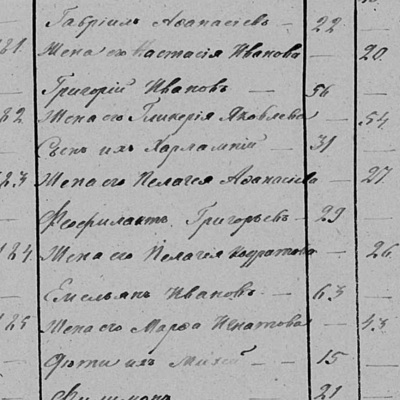 Габріилъ Аѳанасіевъ — 22 —
181. Жена его Настасія Иванова — 20.
Григорій Ивановъ — 56 —
182. Жена его Гликерія Яковлева — 54.
Сынъ ихъ Харлампій — 31 —
183 Жена его Пелагея Аѳанасіева — 27.
Ѳеофилактъ Григорьевъ — 29 —
184. Жена его Пелагея Кондратова — 26.
Емельянъ Ивановъ — 63 —
185 Жена его Марѳа Игнатова — 43.
ихъ — 15 —
Филимонъ 21